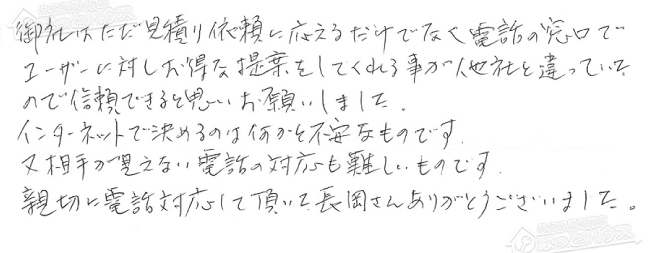 御社はただ見積り依頼に応えるだけでなく電話の窓口で
ユーザーに対しお得な提案をしてくれる事が他社と違っていた
ので信頼できると思いお願いしました。
インターネットで決めるのは何かと不安なものです。
又相手が見えない電話の対応も難しいものです。
親切に電話対応して頂いた長岡さんありがとうございました。